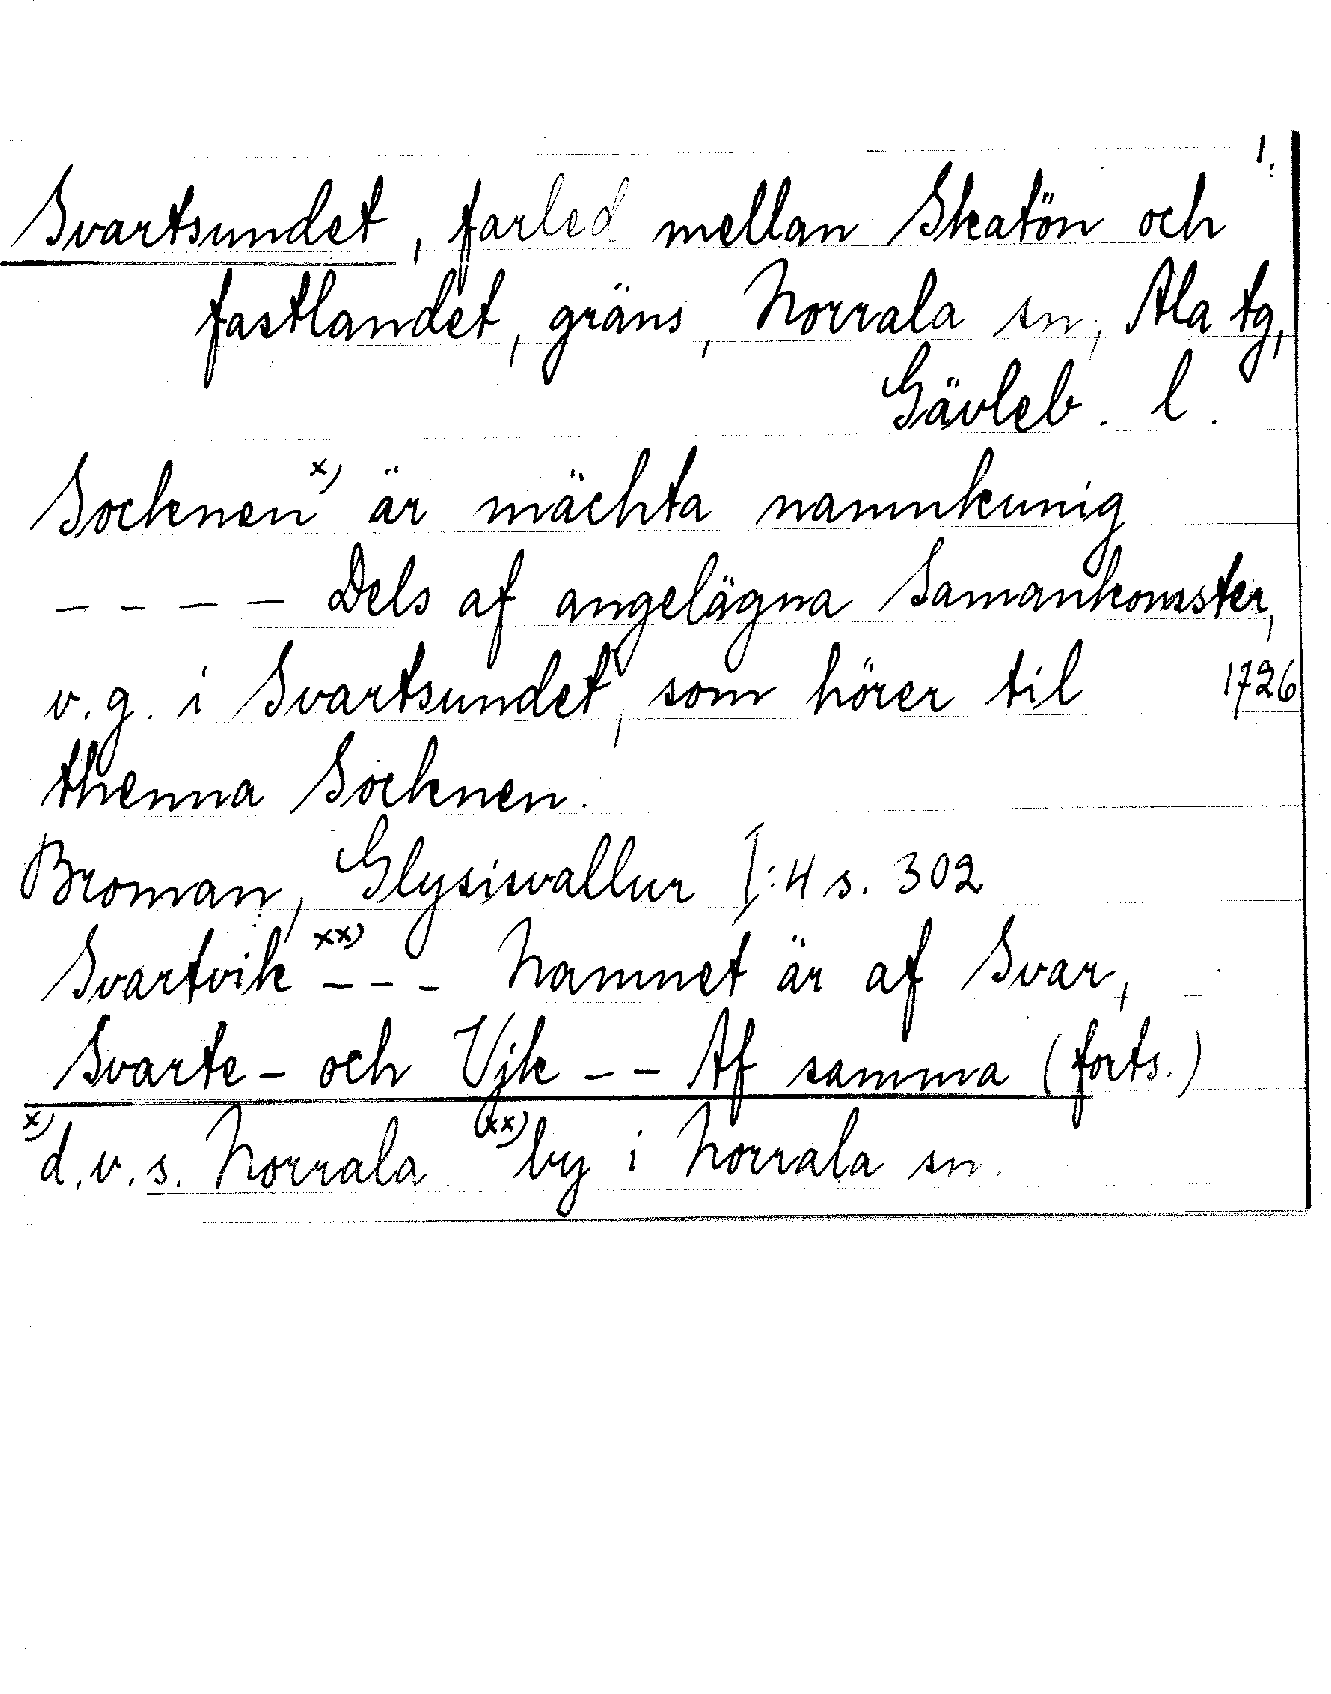 1.
Svartsundet, farled mellan Skatön och
fastlandet, gräns, Norrala sn, Ala tg,
Gävleb. l.
Socknen x) är mächta namnkunig
---- Dels af angelägna Samankomster,
v.g. i Svartsundet, som hörer til 1726
thenna Socknen.
Broman, Glysisvallur I:4 s. 302
Svartvik xx) --- Namnet är af Svar,
Svarte- och Vjk -- Af samma (forts.)
x) d.v.s. Norrala xx) by i Norrala sn.